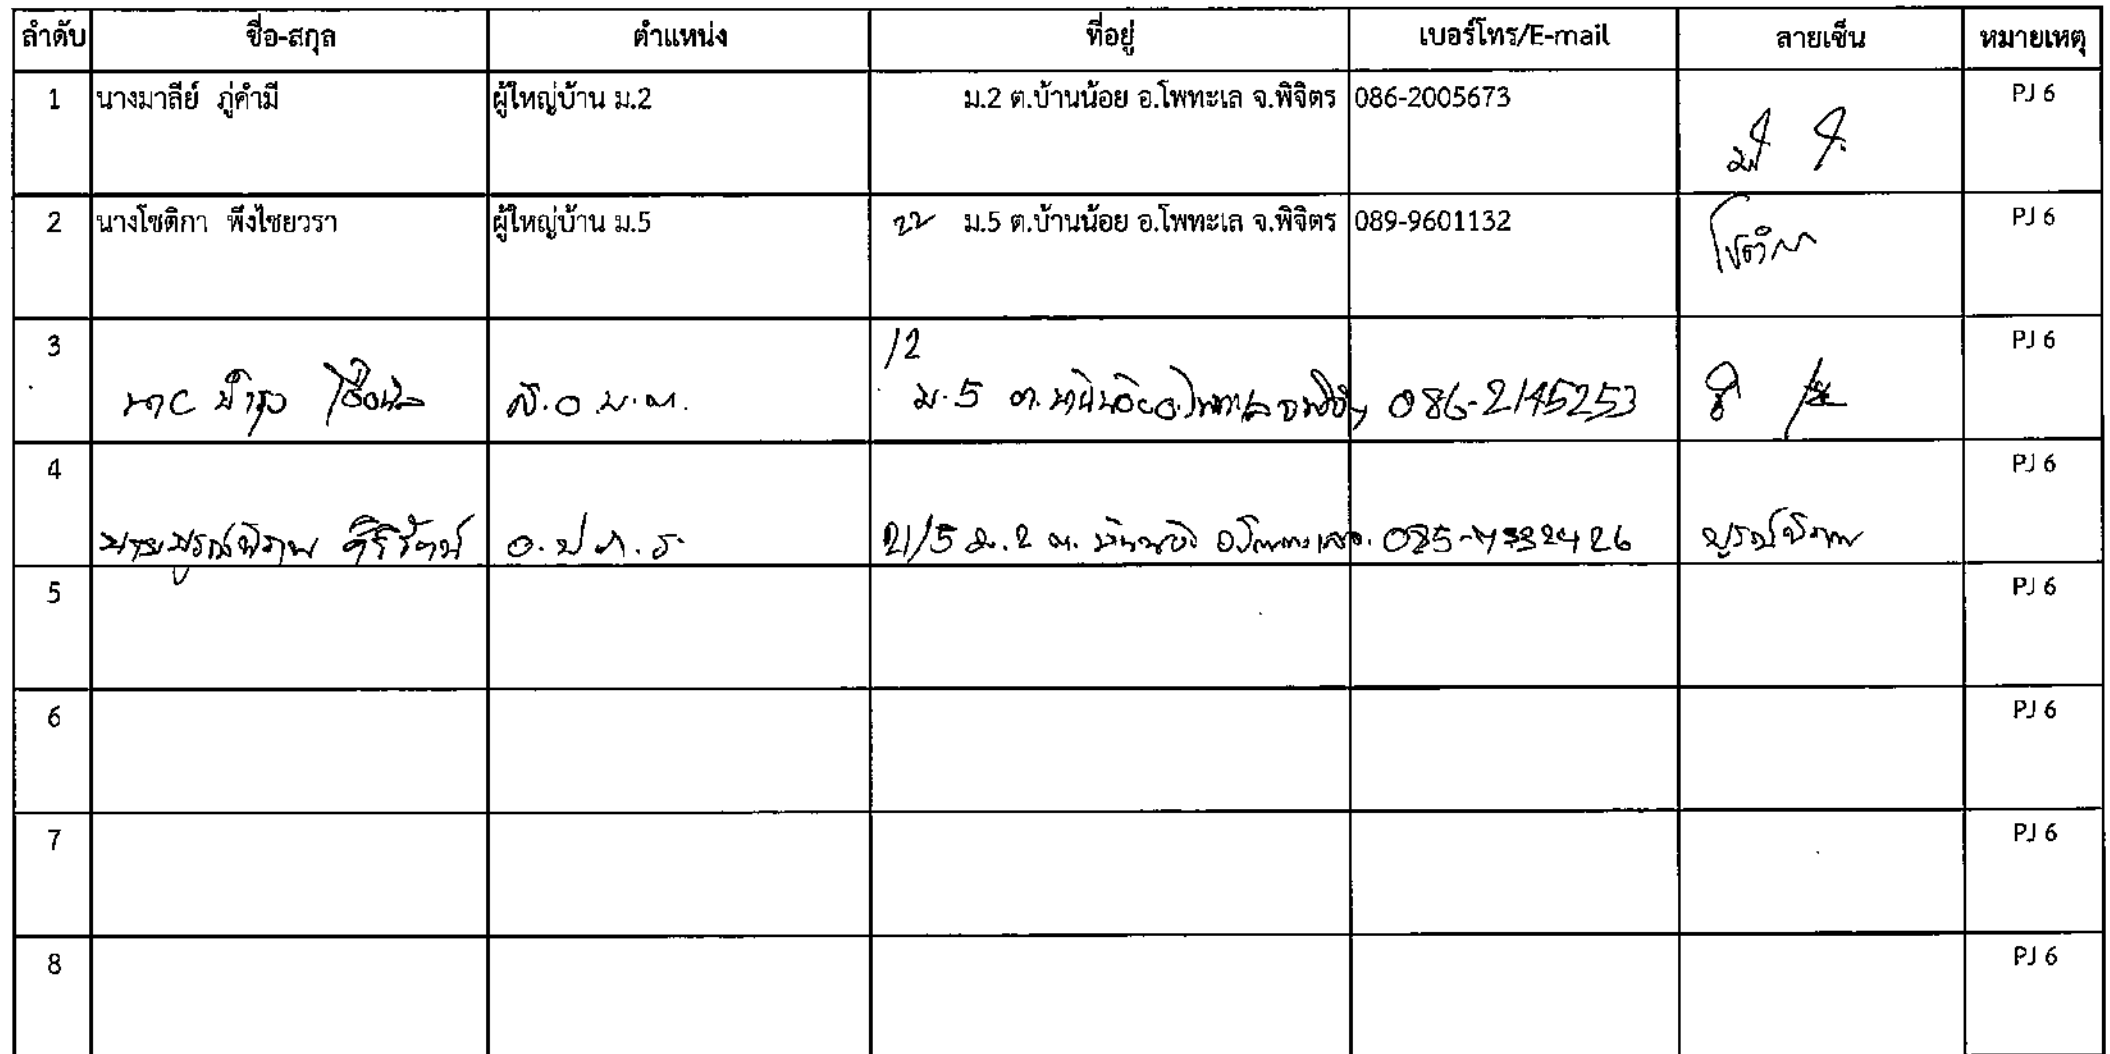 ลำดับ ชื่อ-สกุล ตำแหน่ง ที่อยู่ เบอร์โทร/E-mail ลายเซ็น หมายเหตุ
1 นางมาลีย์ ภู่คำมี ผู้ใหญ่บ้าน ม.2 ม.2 ต.บ้านน้อย อ.โพทะเล จ.พิจิตร 086-2005673 PJ 6
2 นางโชติกา พึ่งไชยวรา ผู้ใหญ่บ้าน ม.5 22 ม.5 ต.บ้านน้อย อ.โพทะเล จ.พิจิตร 089-9601132 โชติกา PJ 6
3 12 PJ 6
ส.อ.บ.ต. ม.5 ต.บ้านน้อย อ.โพทะเล จ.พิจิตร 086-2145253
4 PJ 6
นายบูรณ์พิภพ อ.ป.ก.ร 21/5 ม.2 ต.บ้านน้อย อ.โพทะเล บูรณ์พิภพ
5 PJ 6
6 PJ 6
7 PJ 6
8 PJ 6